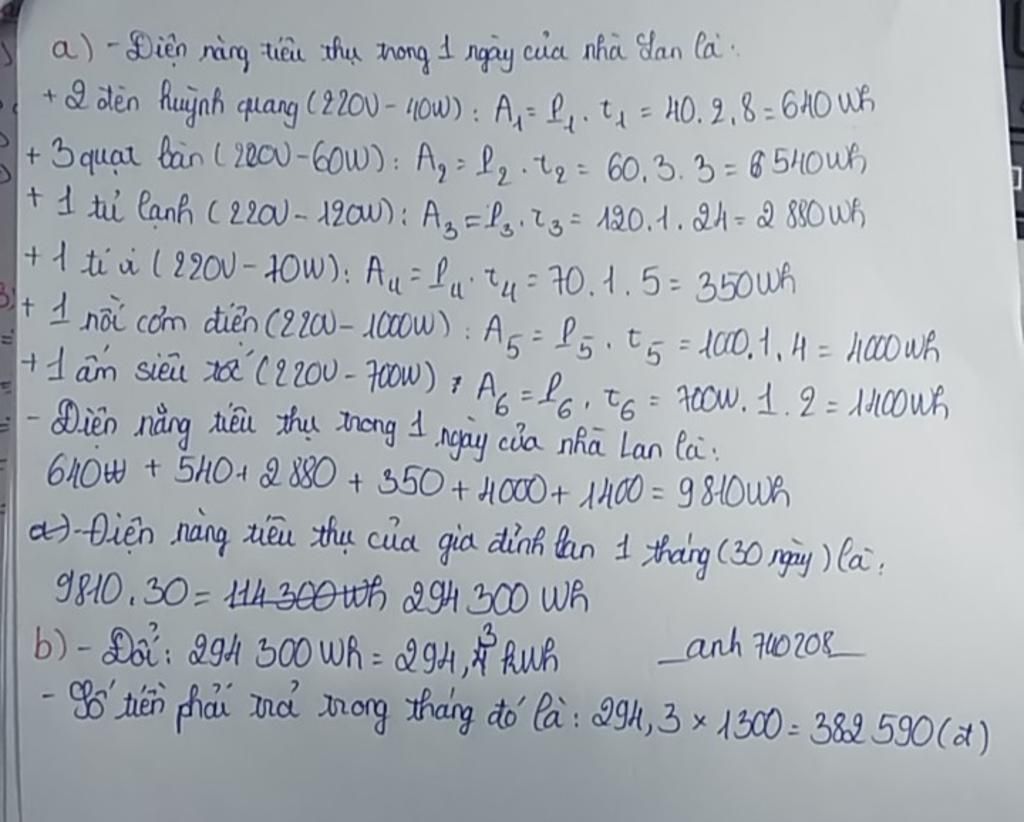 a) - Điện năng tiêu thụ trong 1 ngày của nhà Lan là:
+ 2 đèn huỳnh quang (220V - 40W): A₁ = P₁ . t₁ = 40. 2. 8 = 640 Wh
+ 3 quạt bàn (220V - 60W): A₂ = P₂ . t₂ = 60. 3. 3 = 540Wh
+ 1 tủ lạnh (220V - 120W): A₃ = P₃ . t₃ = 120. 1. 24 = 2 880Wh
+ 1 ti vi (220V - 70W): A₄ = P₄ . t₄ = 70 . 1 . 5 = 350Wh
+ 1 nồi cơm điện (220V - 1000W): A₅ = P₅ . t₅ = 1000. 1. 4 = 4000Wh
+ 1 ấm siêu tốc (220V - 700W): A₆ = P₆ . t₆ = 700W. 1. 2 = 1400Wh
- Điện năng tiêu thụ trong 1 ngày của nhà Lan là:
640 + 540 + 2 880 + 350 + 4000 + 1400 = 9810Wh
a) - Điện năng tiêu thụ của gia đình lan 1 tháng (30 ngày) là:
9810. 30 = 114 300 Wh 294 300 Wh
b) - Đổi: 294 300 Wh = 294,3 kWh
_anh740208_
- Số tiền phải trả trong tháng đó là: 294,3 × 1300 = 382 590 (đ)